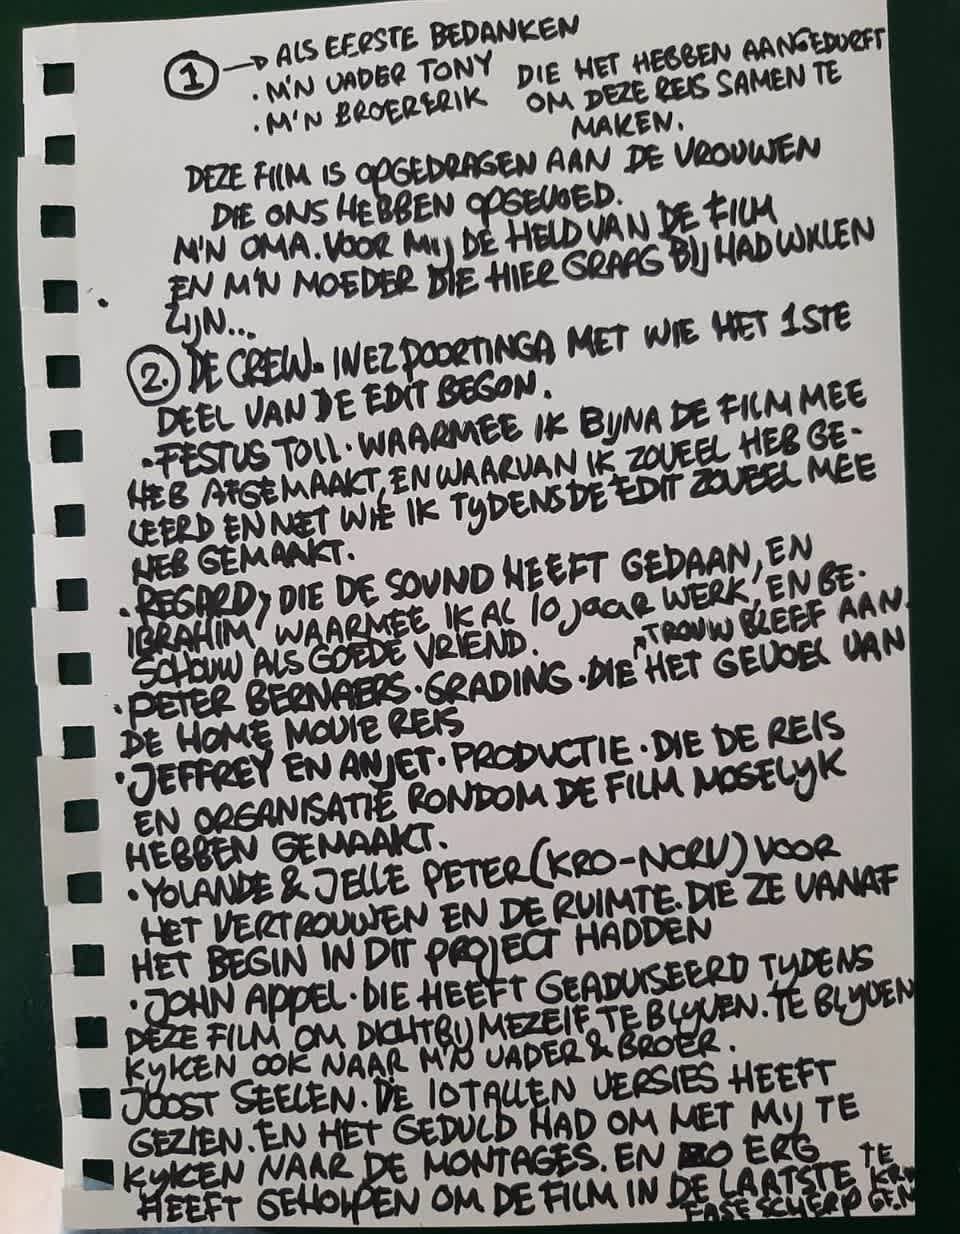 1 → ALS EERSTE BEDANKEN
· M'N VADER TONY
· M'N BROER ERIK
DIE HET HEBBEN AANGEDURFT
OM DEZE REIS SAMEN TE
MAKEN.
DEZE FILM IS OPGEDRAGEN AAN DE VROUWEN
DIE ONS HEBBEN OPGEVOED.
M'N OMA. VOOR MIJ DE HELD VAN DE FILM
EN M'N MOEDER DIE HIER GRAAG BIJ HAD WILLEN
ZIJN...
2. DE CREW. INEZ POORTINGA MET WIE HET 1STE
DEEL VAN DE EDIT BEGON.
· FESTUS TOLL · WAARMEE IK BIJNA DE FILM MEE
HEB AFGEMAAKT, EN WAARVAN IK ZOVEEL HEB GE-
LEERD EN MET WIE IK TYDENS DE EDIT ZOVEEL MEE
HEB GEMAAKT.
· REGARD, DIE DE SOUND HEEFT GEDAAN, EN
IBRAHIM, WAARMEE IK AL 10 JAAR WERK, EN BE-
SCHOUW ALS GOEDE VRIEND.
TROUW BLEEF AAN
· PETER BERNAERS · GRADING · DIE HET GEVOEL VAN
DE HOME MOVIE REIS
· JEFFREY EN ANJET · PRODUCTIE · DIE DE REIS
EN ORGANISATIE RONDOM DE FILM MOGELYK
HEBBEN GEMAAKT.
· YOLANDE & JELLE PETER (KRO-NCRV) VOOR
HET VERTROUWEN EN DE RUIMTE. DIE ZE VANAF
HET BEGIN IN DIT PROJECT HADDEN
· JOHN APPEL · DIE HEEFT GEADVISEERD TYDENS
DEZE FILM OM DICHTBIJ MEZELF TE BLYVEN. TE BLYVEN
KYKEN OOK NAAR M'N VADER & BROER.
JOOST SEELEN. DE 10TALLEN VERSIES HEEFT
GEZIEN. EN HET GEDULD HAD OM MET MIJ TE
KYKEN NAAR DE MONTAGES. EN ZO ERG
HEEFT GEHOLPEN OM DE FILM IN DE LAATSTE
FASE SCHERP TE